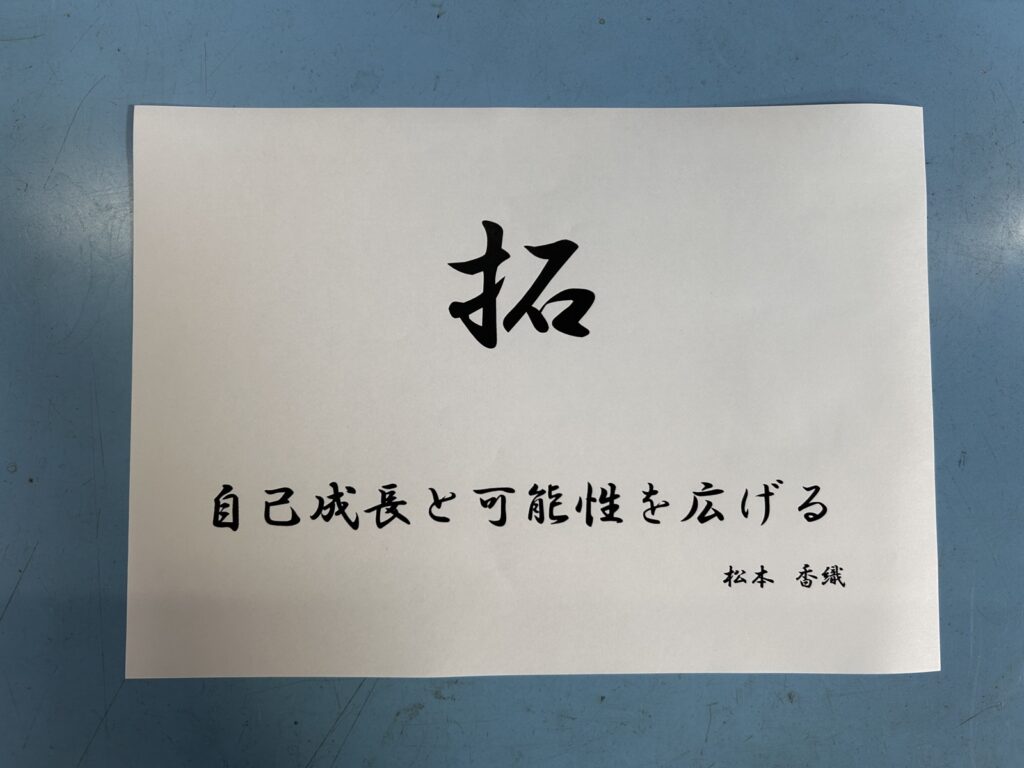 拓
自己成長と可能性を広げる
松本　香織